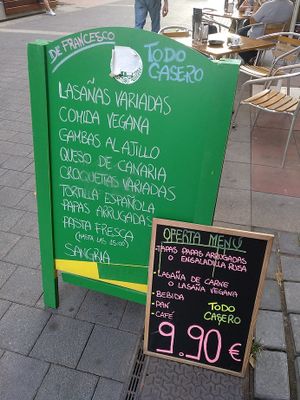 DE FRANCESCO
TODO
CASERO
LASAÑAS VARIADAS
COMIDA VEGANA
GAMBAS AL AJILLO
QUESO DE CANARIA
CROQUETAS VARIADAS
TORTILLA ESPAÑOLA
PAPAS ARRUGADAS
PASTA FRESCA
(HASTA LAS 15:00)
SANGRIA
OFERTA MENÚ
-TAPAS PAPAS ARRUGADAS
O ENSALADILLA RUSA
-LASAÑA DE CARNE
O LASAÑA VEGANA
-BEBIDA
-PAN
-CAFÉ
TODO
CASERO
9.90€